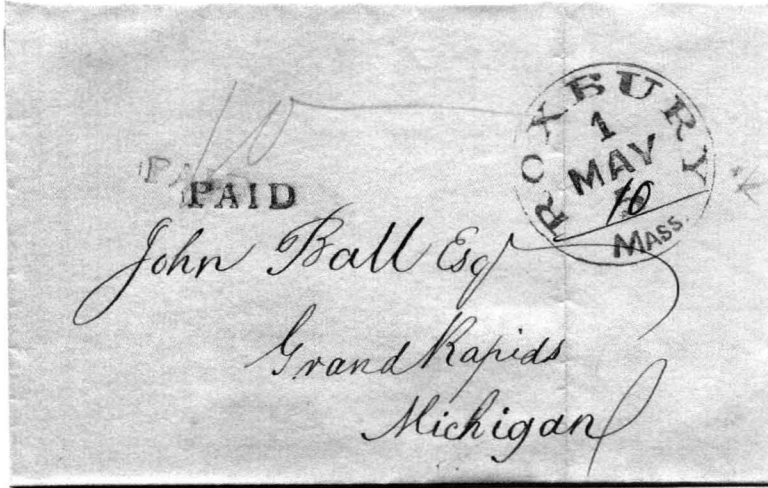 10
PAID
PAID
ROXBURY
1
MAY
10
MASS.
John Ball Esq
Grand Rapids
Michigan